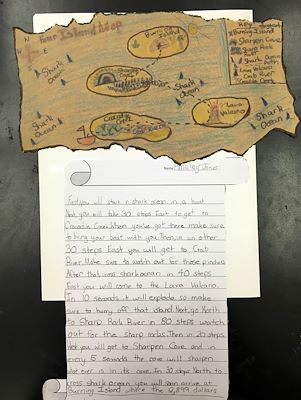 N
Four Island Map
Burning Island
Shark Ocean
Sharpen Cove
Shark Ocean
Crocodile Creek
Crab River
Lava Volcano
Shark Ocean
Shark Ocean
Key
Burning Island
Sharpen Cove
Sharp Rock River
Shark Ocean
Lava Volcano
Crab River
Crocodile Creek
Name
First you will start in shark ocean in a boat
Next, you will take 30 steps East to get to
Crocodile Creek. When you've got there make sure
to bring your boat with you. Then, in an other
30 steps East you will get to Crab
River. Make sure to watch out for those pinchers
After that, cross shark ocean in 40 steps
East you will come to the Lava Volcano.
In 10 seconds it will explode so make
sure to hurry off that island. Next, go North
to Sharp Rock River in 80 steps watch
out for the sharp rocks. Then in 20 steps
West you will get to Sharpen Cove and in
every 5 seconds the cave will sharpen
what ever is in its cave. In 30 steps North to
cross shark ocean you will soon arrive at
Burning Island while the 12,899 dollars